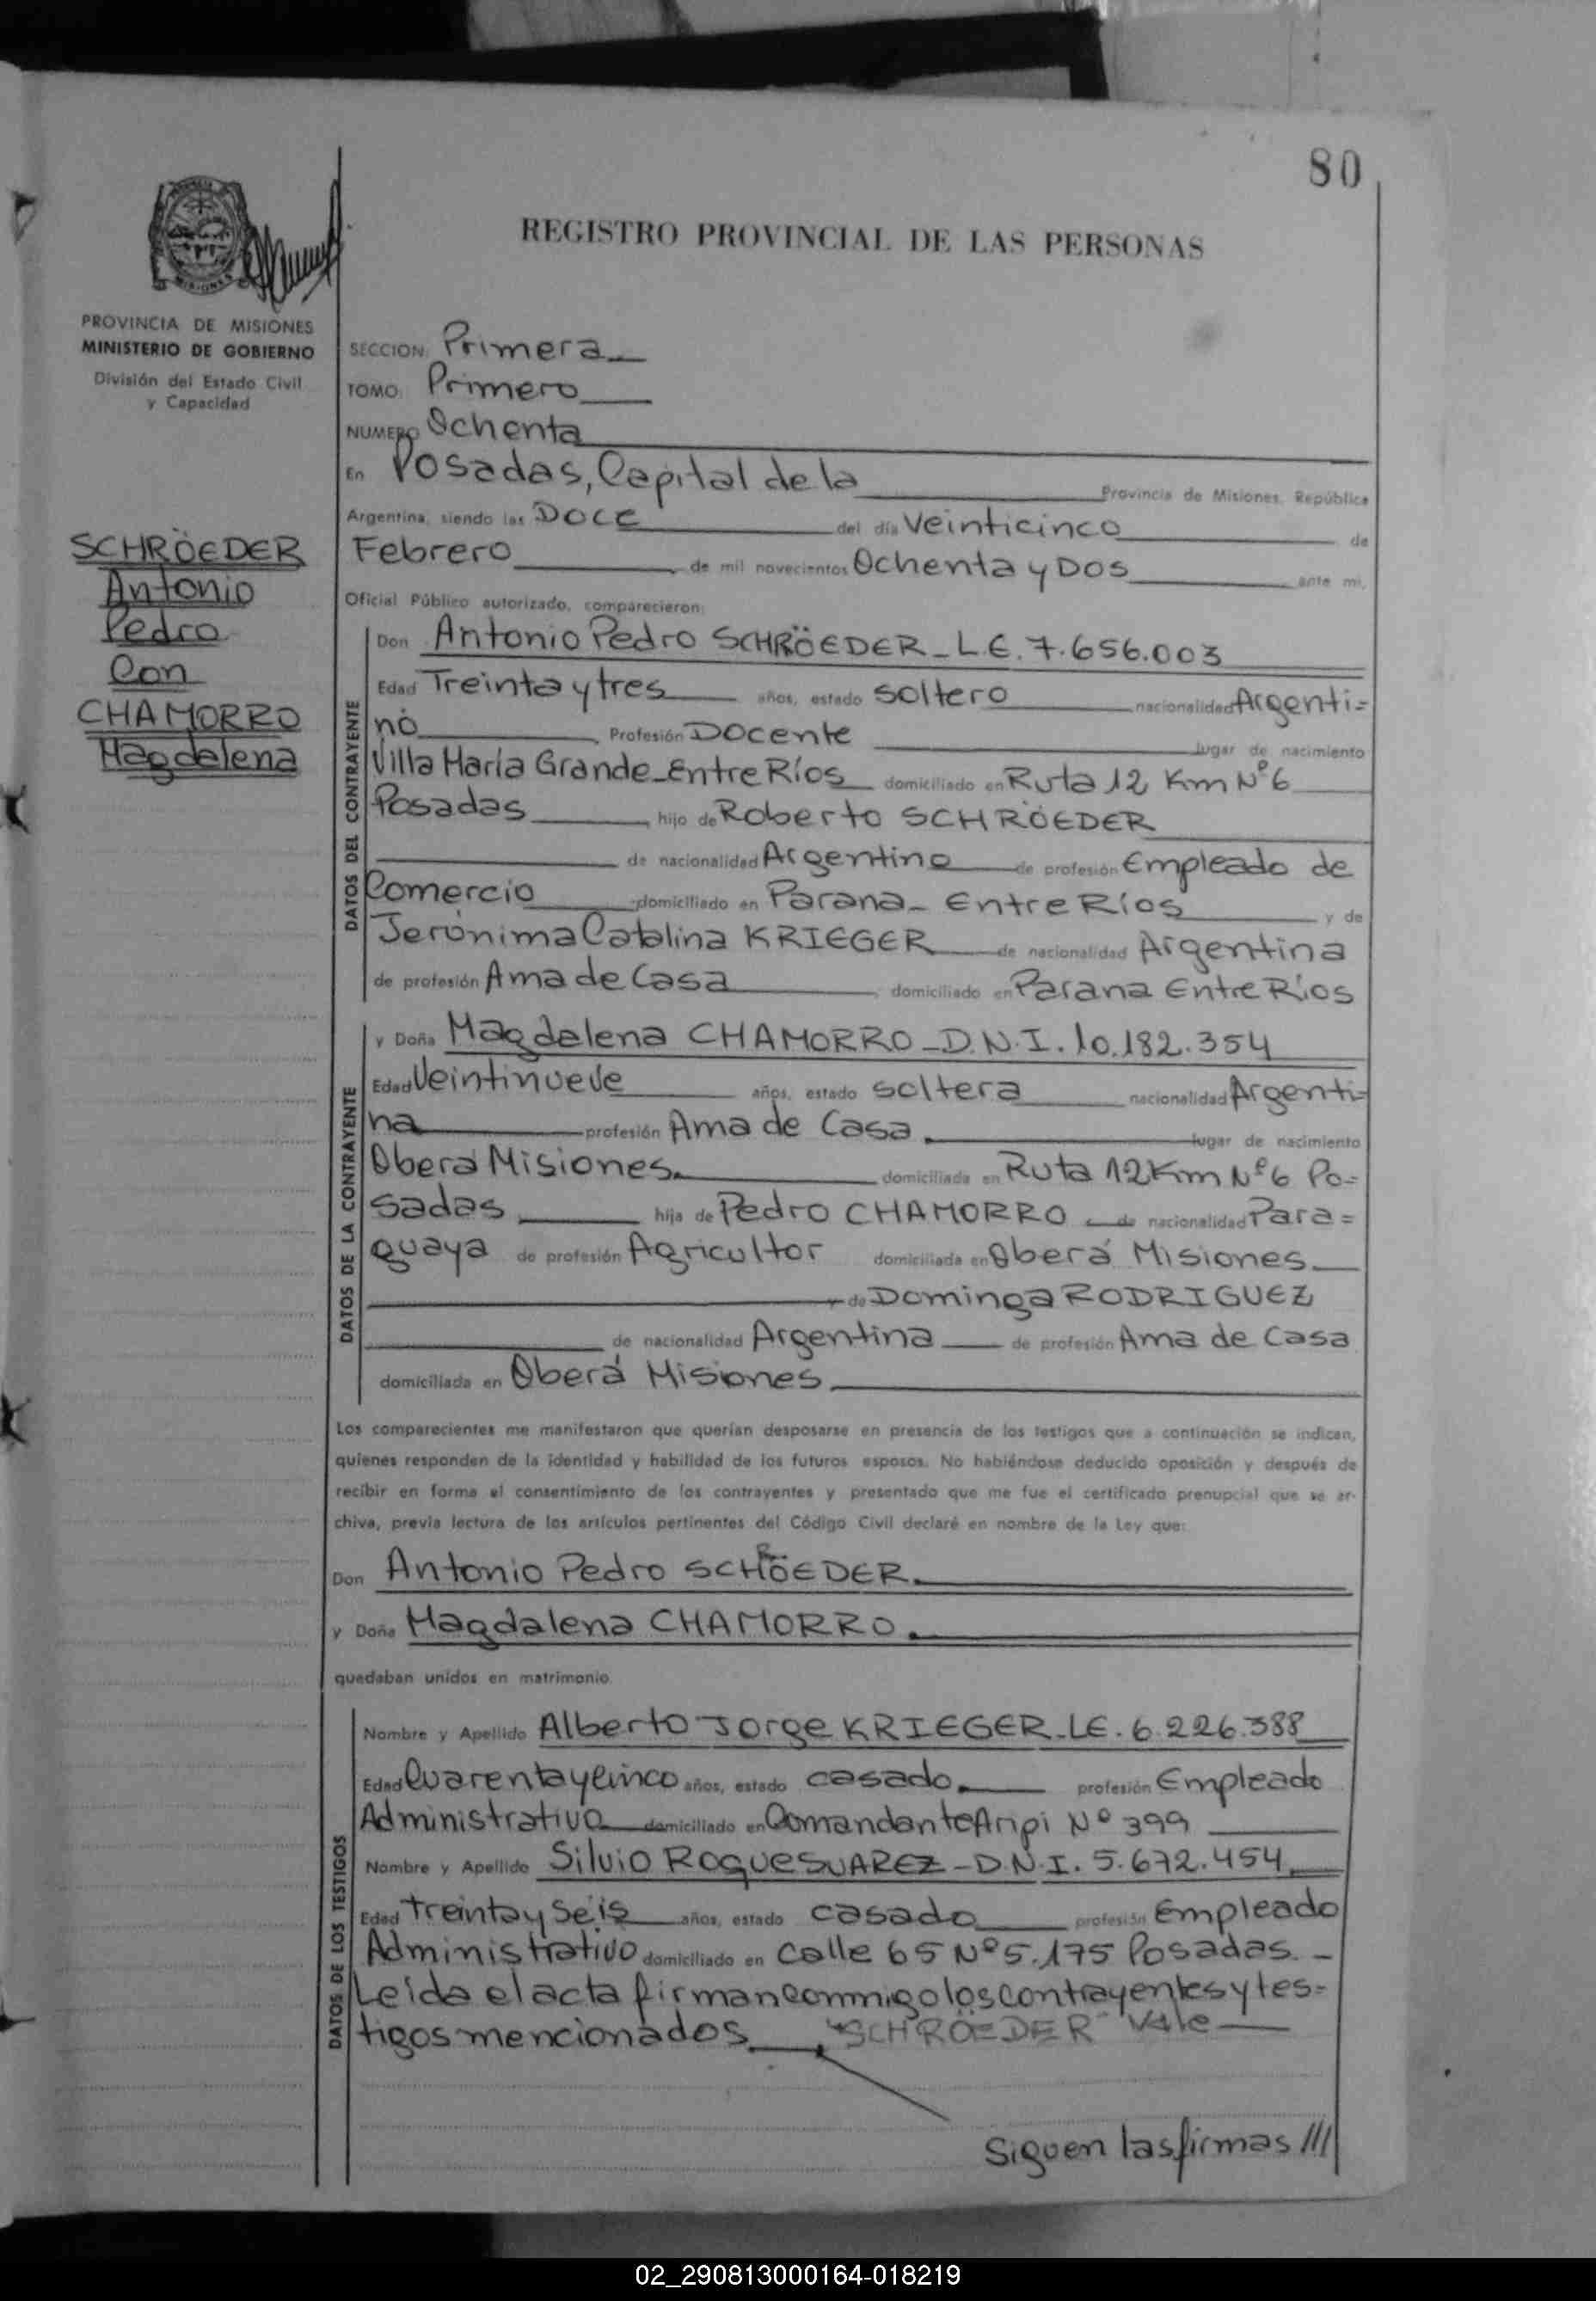 80
REGISTRO PROVINCIAL DE LAS PERSONAS
PROVINCIA DE MISIONES
MINISTERIO DE GOBIERNO
División del Estado Civil
y Capacidad
SCHRÖEDER
Antonio
Pedro
Con
CHAMORRO
Magdalena
SECCION: Primera
TOMO: Primero
NUMERO Ochenta
En Posadas, Capital de la Provincia de Misiones, República
Argentina, siendo las DOCE del día Veinticinco de
Febrero de mil novecientos Ochenta y DOS ante mi,
Oficial Público autorizado, comparecieron:
DATOS DEL CONTRAYENTE
Don Antonio Pedro SCHRÖEDER - L.E. 7.656.003
Edad Treinta y tres años, estado soltero nacionalidad Argenti=
no Profesión Docente lugar de nacimiento
Villa María Grande - Entre Ríos domiciliado en Ruta 12 Km Nº 6
Posadas hijo de Roberto SCHRÖEDER
de nacionalidad Argentino de profesión Empleado de
Comercio domiciliado en Parana - Entre Ríos y de
Jerónima Catalina KRIEGER de nacionalidad Argentina
de profesión Ama de Casa, domiciliado en Parana Entre Ríos
DATOS DE LA CONTRAYENTE
y Doña Magdalena CHAMORRO - D.N.I. 10.182.354
Edad Veintinueve años, estado soltera nacionalidad Argenti=
na profesión Ama de Casa. lugar de nacimiento
Oberá Misiones. domiciliada en Ruta 12 Km Nº 6 Po=
sadas hija de Pedro CHAMORRO de nacionalidad Para=
guaya de profesión Agricultor domiciliada en Oberá Misiones
y de Dominga RODRIGUEZ
de nacionalidad Argentina de profesión Ama de Casa
domiciliada en Oberá Misiones
Los comparecientes me manifestaron que querían desposarse en presencia de los testigos que a continuación se indican,
quienes responden de la identidad y habilidad de los futuros esposos. No habiéndose deducido oposición y después de
recibir en forma el consentimiento de los contrayentes y presentado que me fue el certificado prenupcial que se ar-
chiva, previa lectura de los artículos pertinentes del Código Civil declaré en nombre de la Ley que:
Don Antonio Pedro SCHRÖEDER.
y Doña Magdalena CHAMORRO.
quedaban unidos en matrimonio
DATOS DE LOS TESTIGOS
Nombre y Apellido Alberto Jorge KRIEGER - LE. 6.226.388
Edad Cuarenta y cinco años, estado casado. profesión Empleado
Administrativo domiciliado en Comandante Nº 399
Nombre y Apellido Silvio Roque SUAREZ - D.N.I. 5.672.454
Edad Treinta y Seis años, estado casado profesión Empleado
Administrativo domiciliado en Calle 65 Nº 5.175 Posadas. -
Leida el acta firman conmigo los contrayentes y tes=
tigos mencionados "SCHRÖEDER" Vale
Siguen las firmas ///
02_290813000164-018219